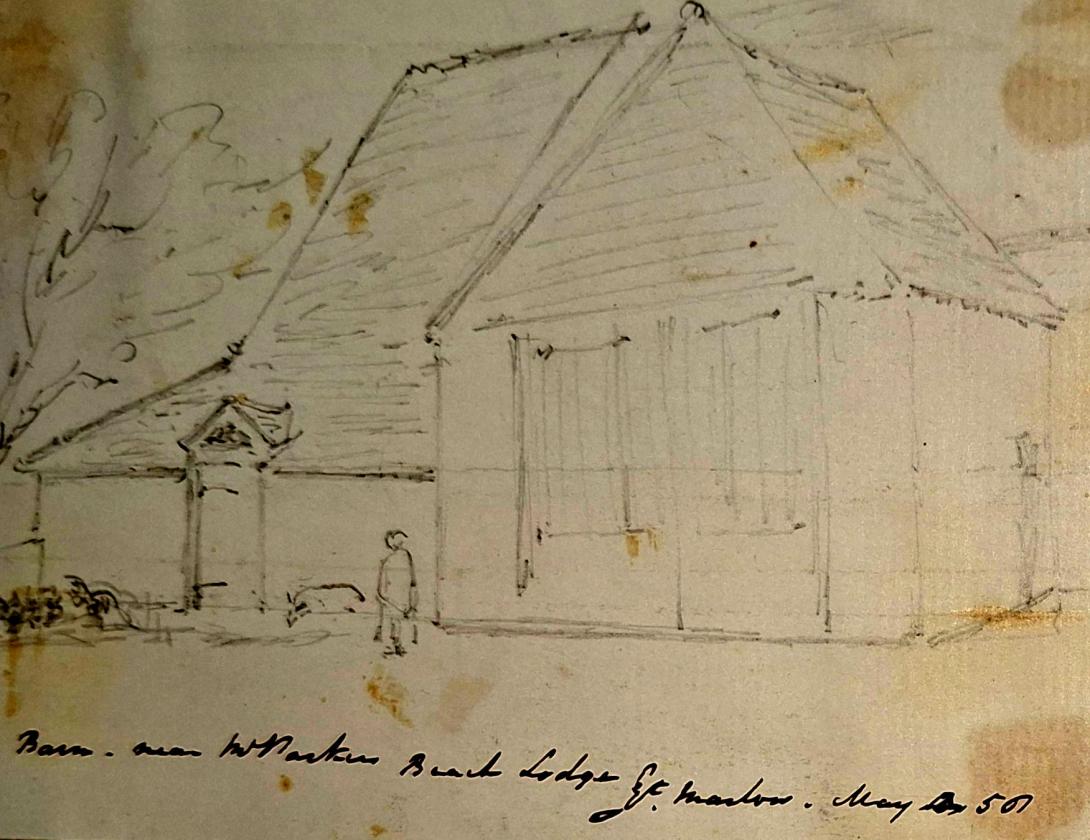 Barn - near Mr Parkers Beach Lodge Gt. Marlow. May 50